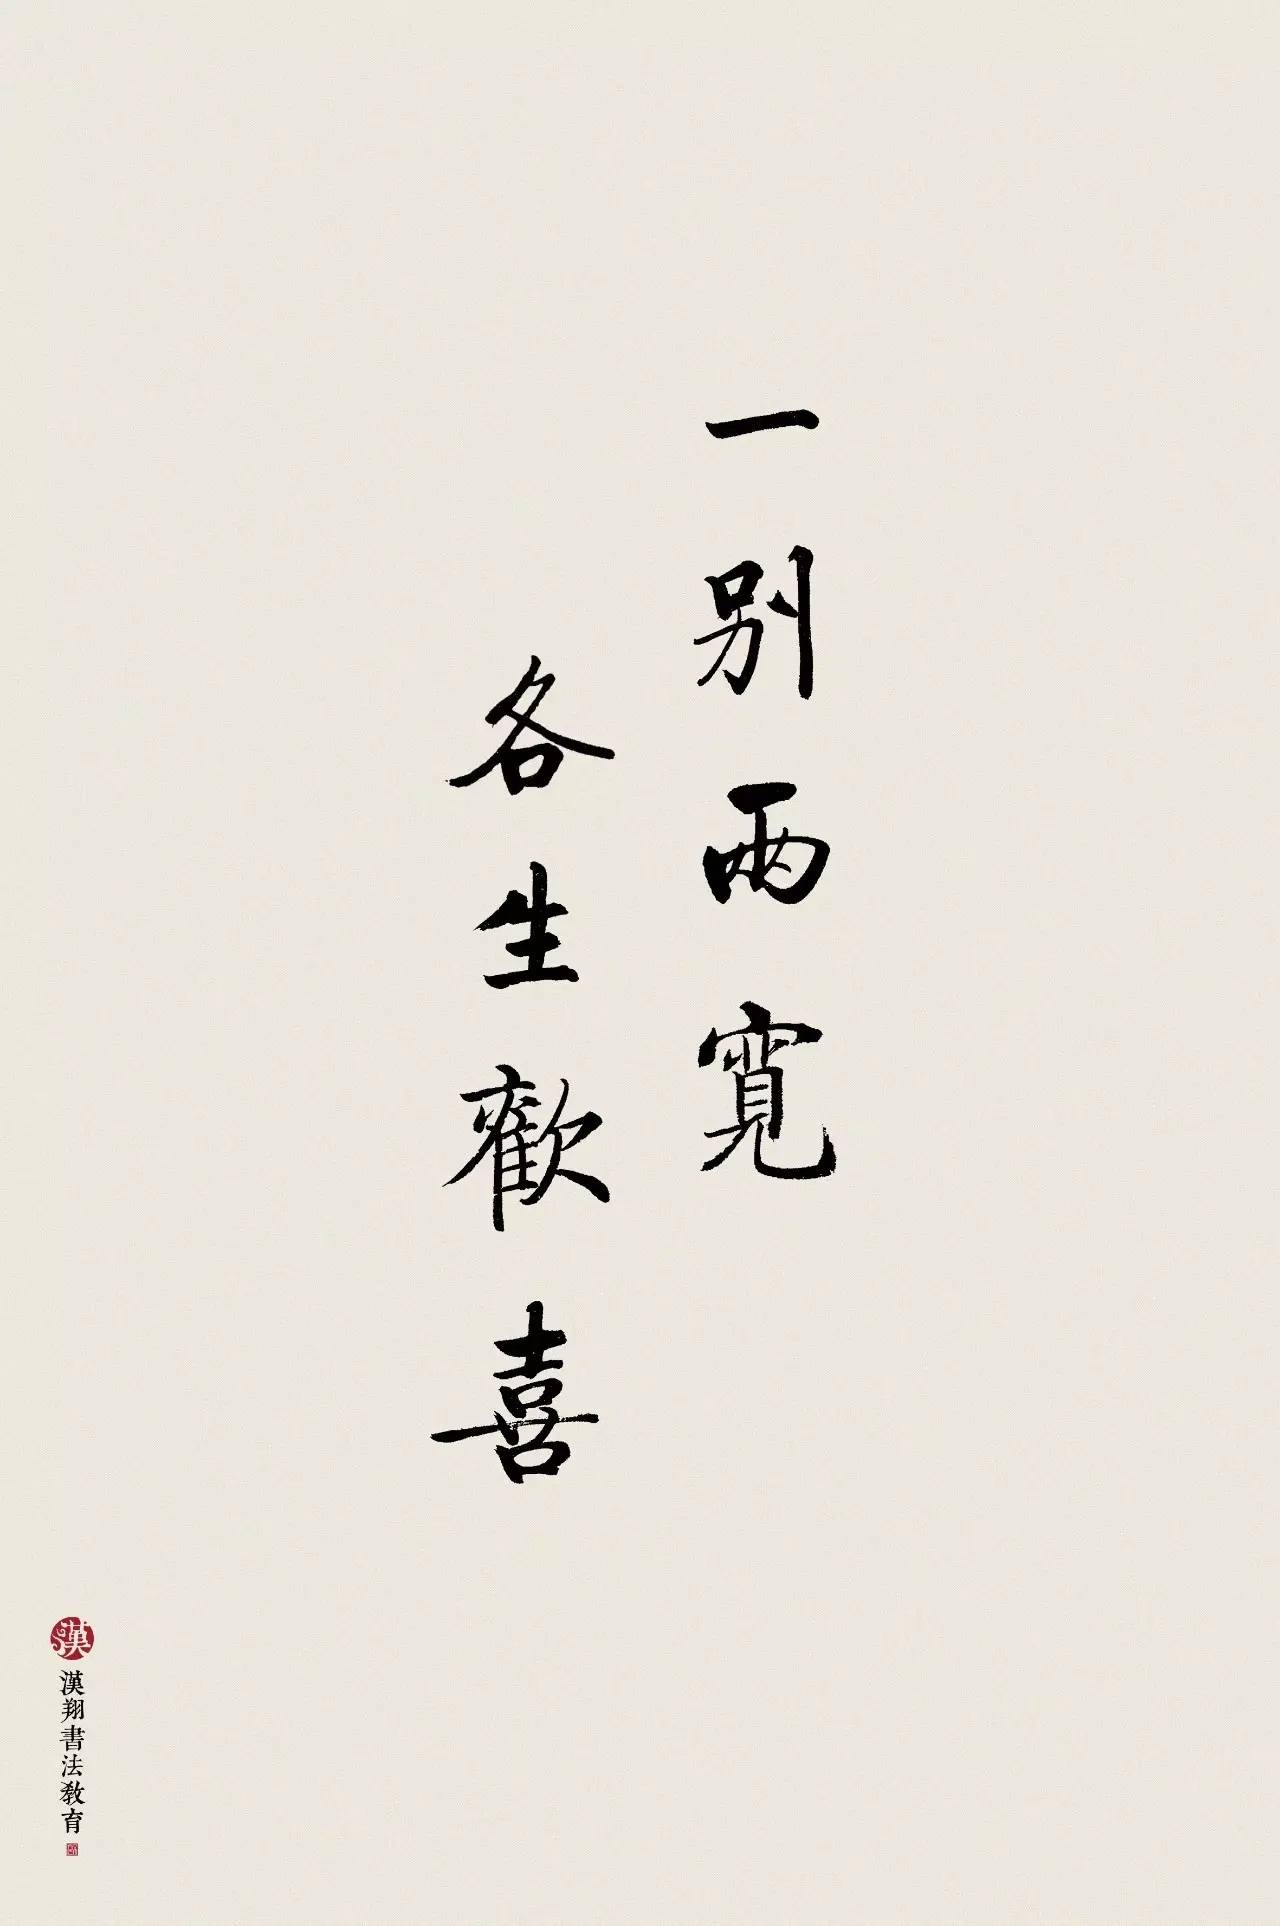 一别兩寬
各生歡喜
漢
漢翔書法教育